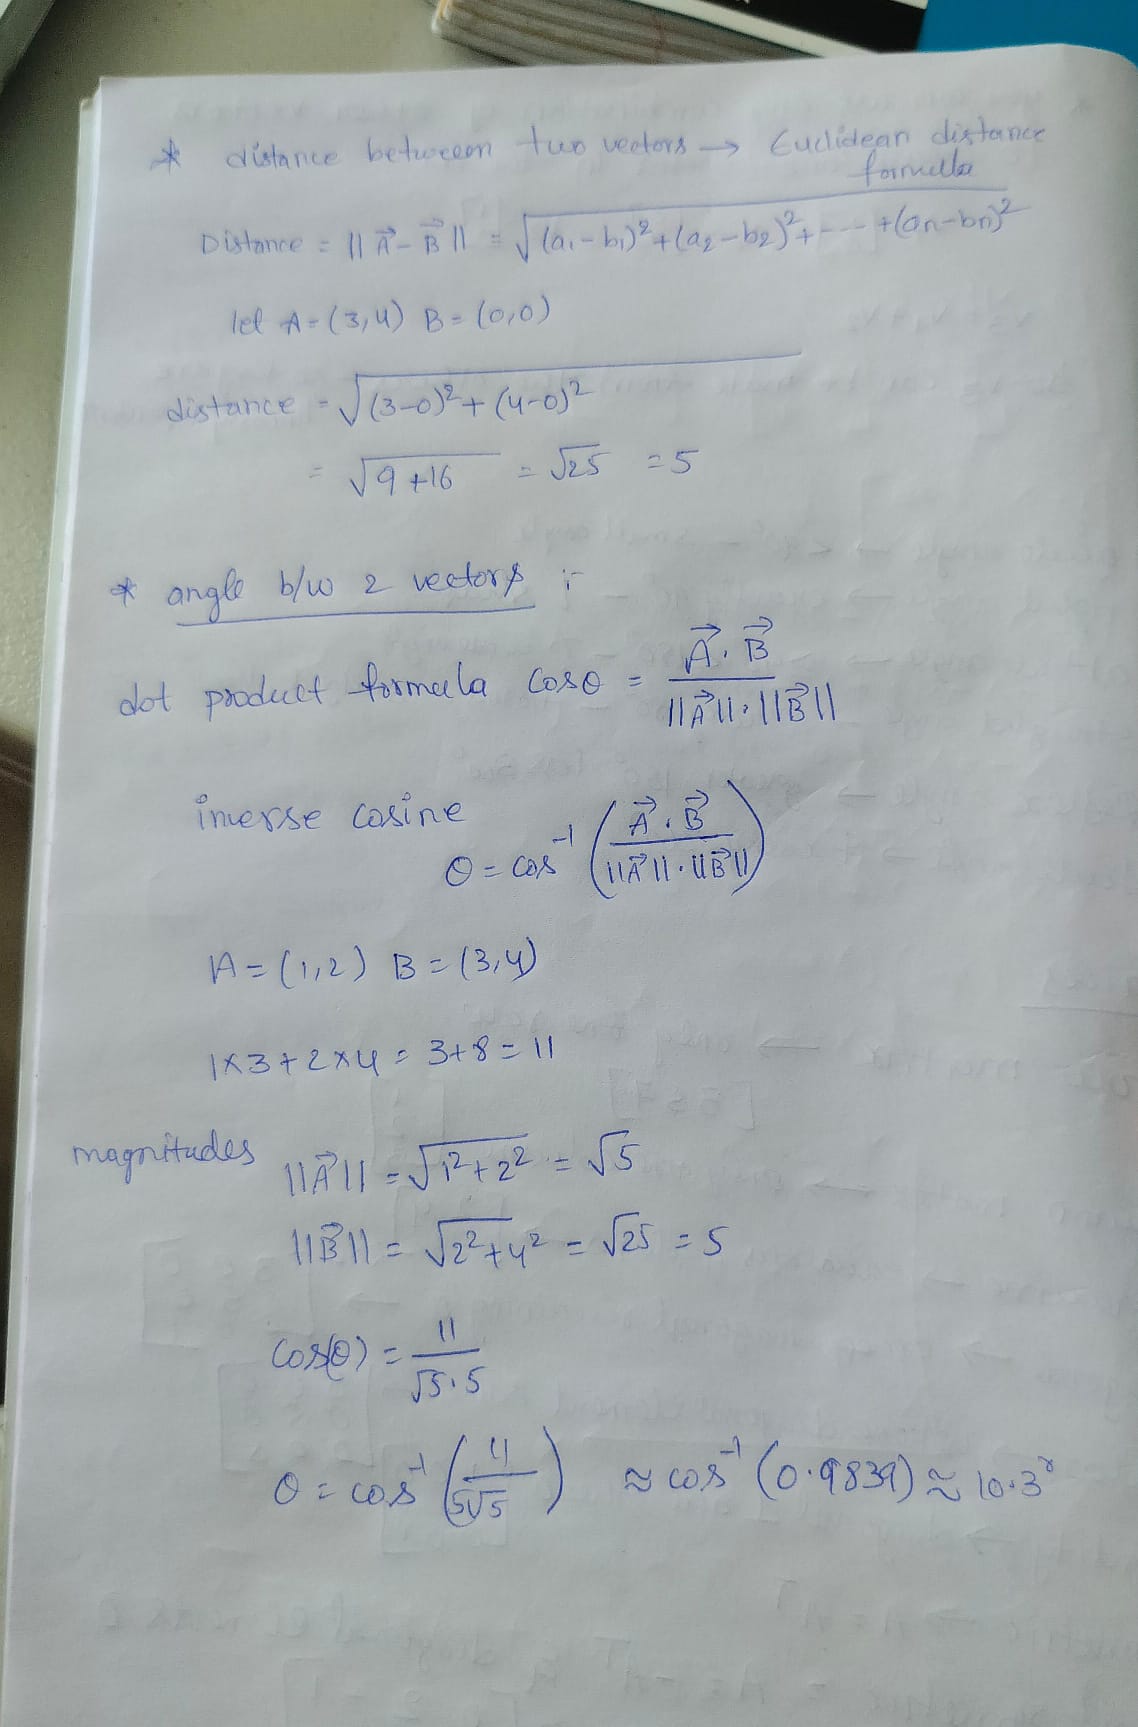 * distance between two vectors → Euclidean distance
formulla
Distance = ||A⃗ - B⃗|| = √(a₁-b₁)²+(a₂-b₂)²+---+(an-bn)²
let A=(3,4) B=(0,0)
distance = √(3-0)²+(4-0)²
= √9+16 = √25 = 5
* angle b/w 2 vectors :-
dot product formula cosθ = A⃗.B⃗ / ||A⃗||.||B⃗||
inverse cosine
θ = cos⁻¹ (A⃗.B⃗ / ||A⃗||.||B⃗||)
A=(1,2) B=(3,4)
1×3+2×4 = 3+8 = 11
magnitudes ||A⃗|| = √1²+2² = √5
||B⃗|| = √2²+4² = √25 = 5
cos(θ) = 11 / √5.5
θ = cos⁻¹ (11 / 5√5) ≈ cos⁻¹ (0.9839) ≈ 10.3°